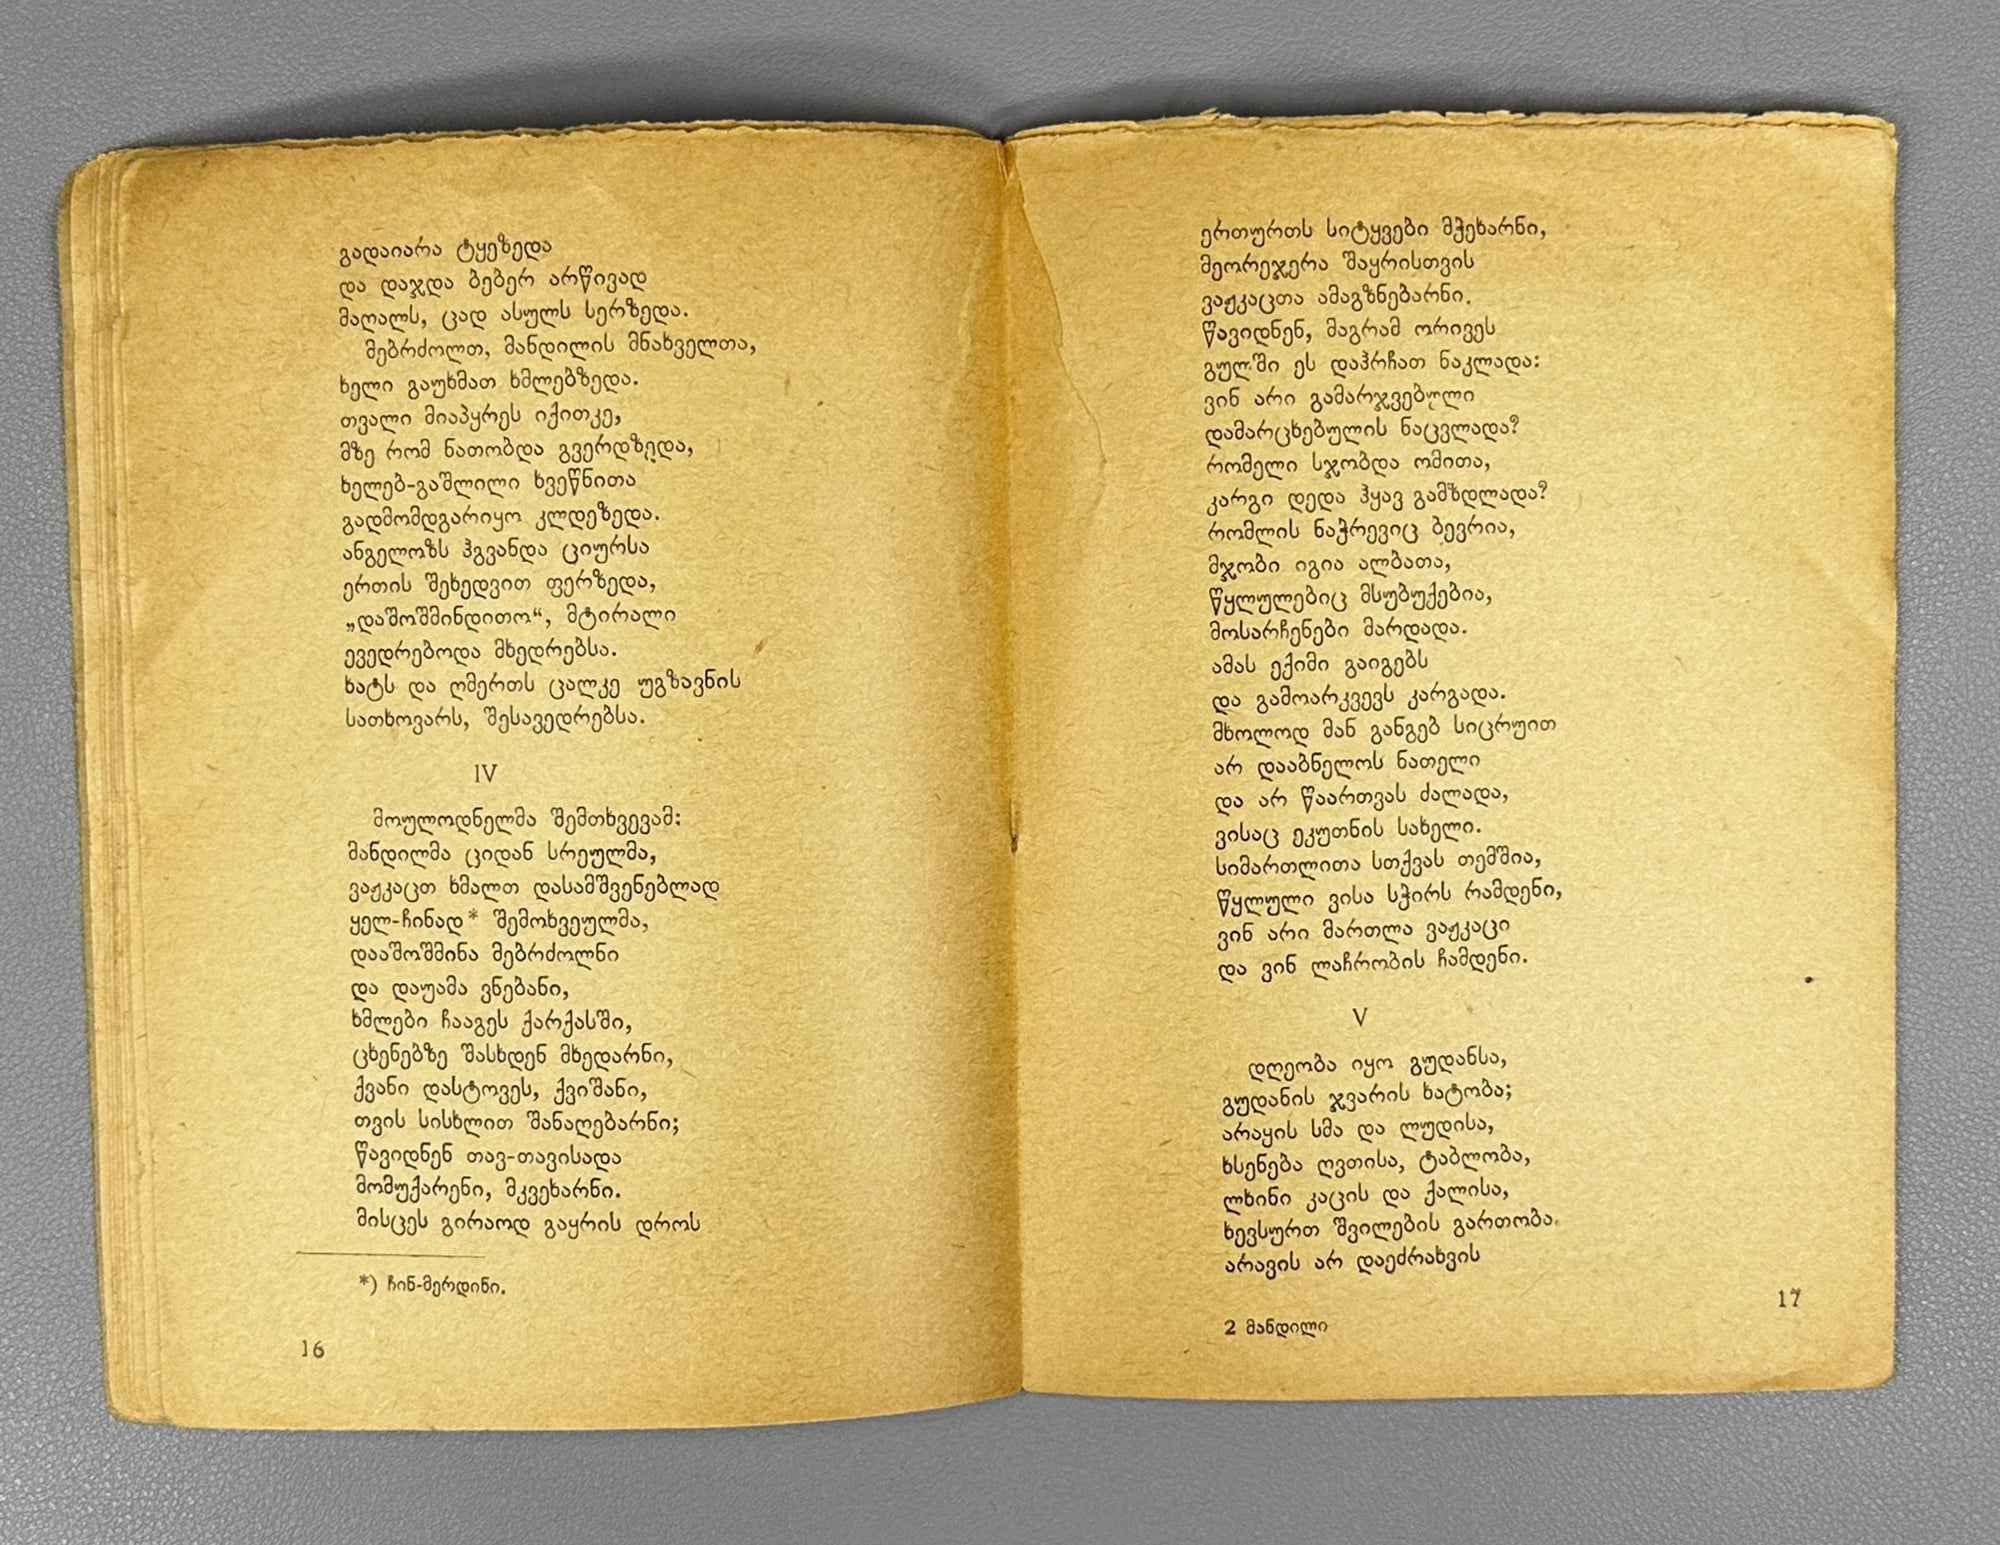 გადაიარა ტყეზედა
და დაჯდა ბებერ არწივად
მაღალს, ცად ასულს სერზედა.
მებრძოლთ, მანდილის მნახველთა,
ხელი გაუხმათ ხმლებზედა.
თვალი მიაპყრეს იქითკე,
მზე რომ ნათობდა გვერდზედა,
ხელებ-გაშლილი ხვეწნითა
გადმომდგარიყო კლდეზედა.
ანგელოზს ჰგვანდა ციურსა
ერთის შეხედვით ფერზედა,
„დაშოშმინდითო“, მტირალი
ევედრებოდა მხედრებსა.
ხატს და ღმერთს ცალკე უგზავნის
სათხოვარს, შესავედრებსა.
IV
მოულოდნელმა შემთხვევამ:
მანდილმა ციდან სრეულმა,
ვაჟკაცთ ხმალთ დასამშვენებლად
ყელ-ჩინად* შემოხვეულმა,
დააშოშმინა მებრძოლნი
და დაუამა ვნებანი,
ხმლები ჩააგეს ქარქასში,
ცხენებზე შასხდენ მხედარნი,
ქვანი დასტოვეს, ქვიშანი,
თვის სისხლით შანაღებარნი;
წავიდნენ თავ-თავისადა
მომუქარენი, მკვეხარნი.
მისცეს გირაოდ გაყრის დროს
*) ჩინ-მერდინი.
16
ერთურთს სიტყვები მჭეხარნი,
მეორეჯერა შაყრისთვის
ვაჟკაცთა ამაგზნებარნი.
წავიდნენ, მაგრამ ორივეს
გულში ეს დაჰრჩათ ნაკლადა:
ვინ არი გამარჯვებული
დამარცხებულის ნაცვლადა?
რომელი სჯობდა ომითა,
კარგი დედა ჰყავ გამზდლადა?
რომლის ნაჭრევიც ბევრია,
მჯობი იგია ალბათა,
წყლულებიც მსუბუქებია,
მოსარჩენები მარდადა.
ამას ექიმი გაიგებს
და გამოარკვევს კარგადა.
მხოლოდ მან განგებ სიცრუით
არ დააბნელოს ნათელი
და არ წაართვას ძალადა,
ვისაც ეკუთნის სახელი.
სიმართლითა სთქვას თემშია,
წყლული ვისა სჭირს რამდენი,
ვინ არი მართლა ვაჟკაცი
და ვინ ლაჩრობის ჩამდენი.
V
დღეობა იყო გუდანსა,
გუდანის ჯვარის ხატობა;
არაყის სმა და ლუდისა,
ხსენება ღვთისა, ტაბლობა,
ლხინი კაცის და ქალისა,
ხევსურთ შვილების გართობა.
არავის არ დაეძრახვის
17
2 მანდილი